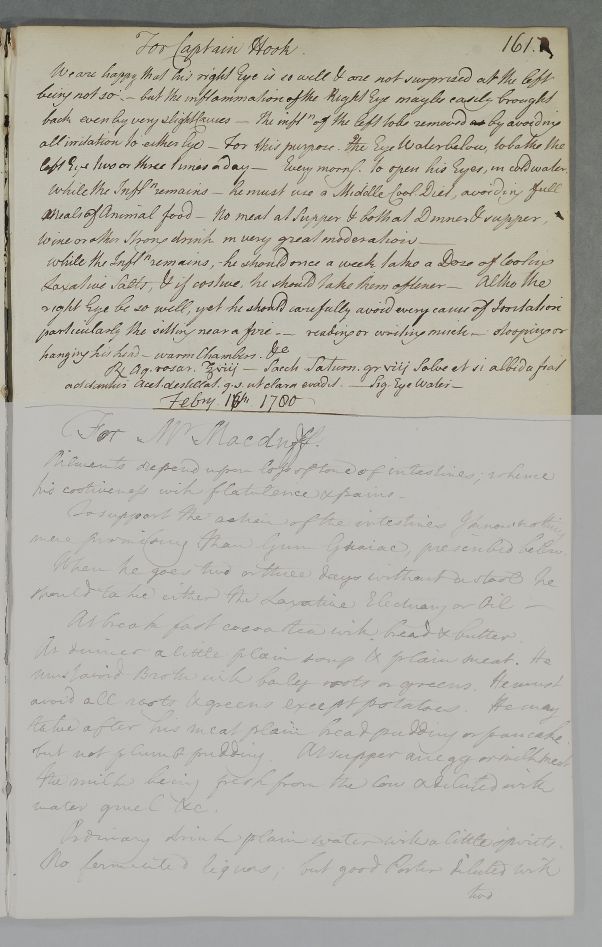 For Captain Hook. 161.
We are happy that his right Eye is so well & are not surprised at the left
being not so – but the inflammation of the Right Eye may be easily brought
back even by very slight causes – The infln of the left to be removed by avoiding
all irritation to either Eye – For this purpose. The Eye Water below, to bathe the
left Eye two or three times a day – Every morng. to open his Eyes, in cold water,
While the Infln remains – he must use a Middle Cool Diet, avoiding full
Meals of Animal food – No meat at Supper & both at Dinner & supper,
wine or other Strong drink in very great moderation –
While the Infln remains, he should once a week take a Dose of cooling
Laxative Salts, & if costive, he should take them oftener – Altho the
right Eye be so well, yet he should carefully avoid every cause of Irritation
particularly the sitting near a fire – reading or writing much – stooping or
hanging his head – warm Chambers. &c
℞ Aq. rosar. ℥viij – Sacch Saturn. gr viij Solve et si albida fiat
Acet. destillat. q.s. ut clara evadit. – Sig. Eye Water –
Febry. 16th 1780
For Mr Macduff.
Ailments depend upon loss of tone of intestines; whence
his costiveness with flatulence & pains –
To support the action of the intestines I know nothing
more promising than Gum Guaiac, prescribed below.
When he goes two or three days without a stool he
should take either the Laxative Electuary or Oil –
At breakfast cocoa tea with bread & butter.
At dinner a little plain soup & plain meat. He
must avoid Broth with barley roots or greens. He must
avoid all roots & greens except potatoes. He may
take after his meat plain bread pudding or pancake
but not plumb pudding. At supper an egg or milk meat
the milk being fresh from the cow & diluted with
water gruel &c.
Ordinary drink plain water with a little spirits.
No fermented liquors; but good Porter diluted with
two